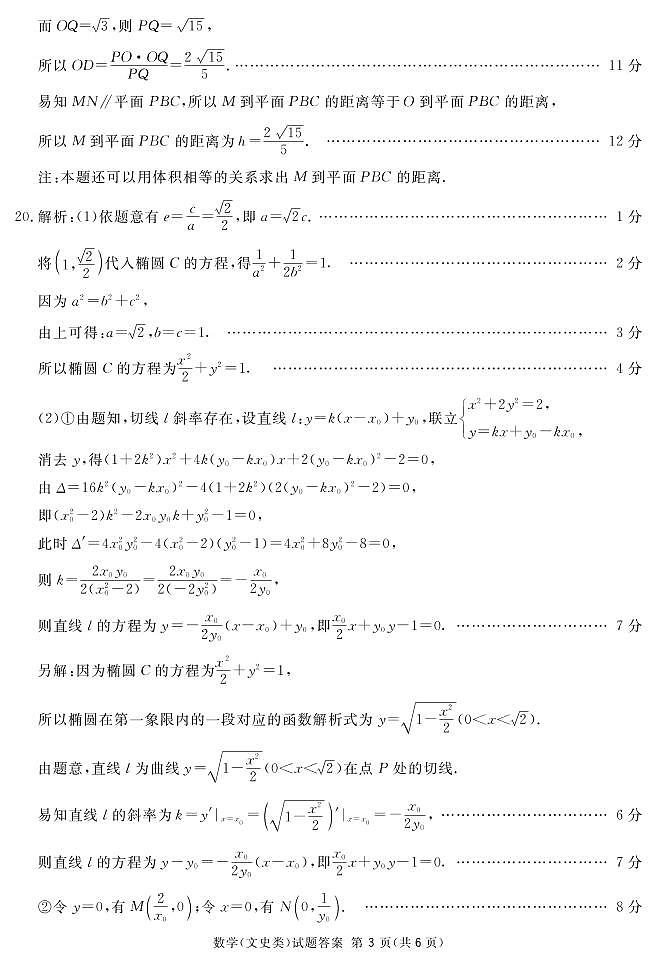 而 OQ=√3,则 PQ=√15,
所以 OD=PO·OQ/PQ=2√15/5.…… 11 分
易知 MN∥平面 PBC,所以 M 到平面 PBC 的距离等于 O 到平面 PBC 的距离,
所以 M 到平面 PBC 的距离为 h=2√15/5. …… 12 分
注:本题还可以用体积相等的关系求出 M 到平面 PBC 的距离.
20.解析:(1)依题意有 e=c/a=√2/2,即 a=√2c.…… 1 分
将(1,√2/2)代入椭圆 C 的方程,得1/a²+1/2b²=1. …… 2 分
因为 a²=b²+c²,
由上可得:a=√2,b=c=1. …… 3 分
所以椭圆 C 的方程为x²/2+y²=1. …… 4 分
(2)①由题知,切线 l 斜率存在,设直线 l:y=k(x-x₀)+y₀,联立{x²+2y²=2, y=kx+y₀-kx₀,
消去 y,得(1+2k²)x²+4k(y₀-kx₀)x+2(y₀-kx₀)²-2=0,
由 Δ=16k²(y₀-kx₀)²-4(1+2k²)(2(y₀-kx₀)²-2)=0,
即(x₀²-2)k²-2x₀y₀k+y₀²-1=0,
此时 Δ′=4x₀²y₀²-4(x₀²-2)(y₀²-1)=4x₀²+8y₀²-8=0,
则 k=2x₀y₀/2(x₀²-2)=2x₀y₀/2(-2y₀²)=-x₀/2y₀,
则直线 l 的方程为 y=-x₀/2y₀(x-x₀)+y₀,即x₀/2x+y₀y-1=0. …… 7 分
另解:因为椭圆 C 的方程为x²/2+y²=1,
所以椭圆在第一象限内的一段对应的函数解析式为 y=√(1-x²/2)(0<x<√2).
由题意,直线 l 为曲线 y=√(1-x²/2)(0<x<√2)在点 P 处的切线.
易知直线 l 的斜率为 k=y′|ₓ₌ₓ₀=(√(1-x²/2))′|ₓ₌ₓ₀=-x₀/2y₀, …… 6 分
则直线 l 的方程为 y-y₀=-x₀/2y₀(x-x₀),即x₀/2x+y₀y-1=0. …… 7 分
②令 y=0,有 M(2/x₀,0);令 x=0,有 N(0,1/y₀). …… 8 分
数学(文史类)试题答案 第 3 页(共 6 页)